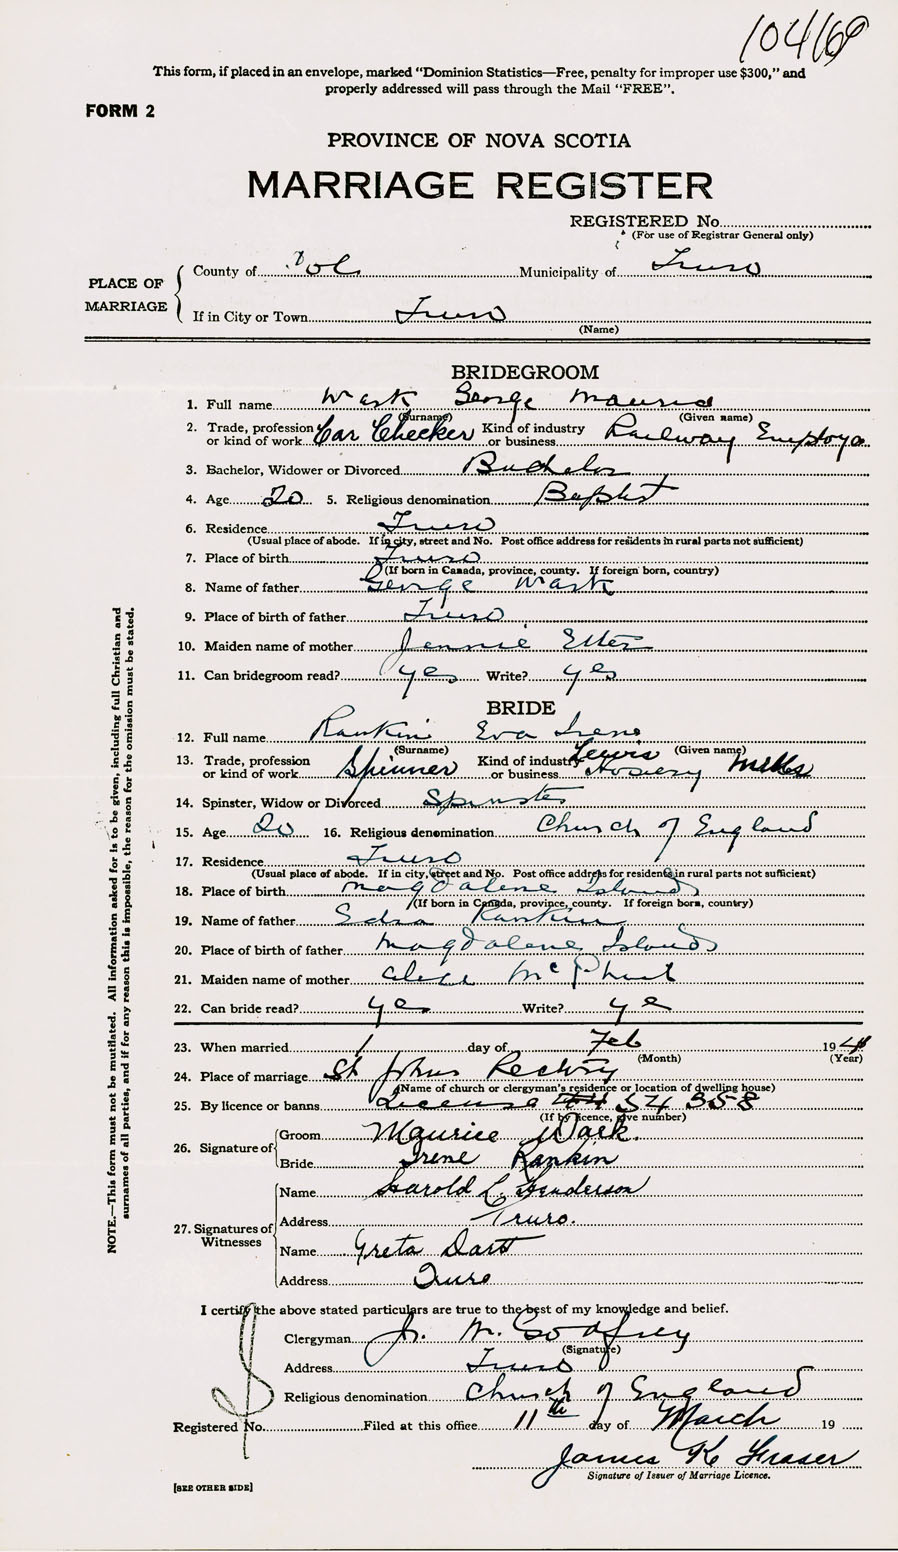 This form, if placed in an envelope, marked "Dominion Statistics—Free, penalty for improper use $300," and
properly addressed will pass through the Mail "FREE".
FORM 2
PROVINCE OF NOVA SCOTIA
MARRIAGE REGISTER
REGISTERED No.
(For use of Registrar General only)
PLACE OF MARRIAGE
County of Col. Municipality of Truro
If in City or Town Truro
(Name)
BRIDEGROOM
1. Full name Wark George Maurice
(Surname) (Given name)
2. Trade, profession or kind of work Car Checker Kind of industry or business Railway Employee
3. Bachelor, Widower or Divorced Bachelor
4. Age 20 5. Religious denomination Baptist
6. Residence Truro
(Usual place of abode. If in city, street and No. Post office address for residents in rural parts not sufficient)
7. Place of birth Truro
(If born in Canada, province, county. If foreign born, country)
8. Name of father George Wark
9. Place of birth of father Truro
10. Maiden name of mother Jennie Etter
11. Can bridegroom read? yes Write? yes
BRIDE
12. Full name Rankin Eva Irene
(Surname) (Given name)
13. Trade, profession or kind of work Spinner Kind of industry or business Lewis Hosiery Mills
14. Spinster, Widow or Divorced Spinster
15. Age 20 16. Religious denomination Church of England
17. Residence Truro
(Usual place of abode. If in city, street and No. Post office address for residents in rural parts not sufficient)
18. Place of birth Magdalene Islands
(If born in Canada, province, county. If foreign born, country)
19. Name of father Rankin
20. Place of birth of father Magdalene Islands
21. Maiden name of mother
22. Can bride read? yes Write? ye
23. When married 1 day of Feb 19
(Month) (Year)
24. Place of marriage St Johns Rectory
(Name of church or clergyman's residence or location of dwelling house)
25. By licence or banns License 54358
(If by licence, give number)
26. Signature of
Groom Maurice Wark.
Bride Irene Rankin
27. Signatures of Witnesses
Name Harold C. Henderson
Address Truro.
Name Greta Dart
Address Truro
I certify the above stated particulars are true to the best of my knowledge and belief.
Clergyman W. Godfrey
(Signature)
Address Truro
Religious denomination Church of England
Registered No. Filed at this office 11th day of March 19
James K Fraser
Signature of Issuer of Marriage Licence.
[SEE OTHER SIDE]
NOTE.—This form must not be mutilated. All information asked for is to be given, including full Christian and
surnames of all parties, and if for any reason this is impossible, the reason for the omission must be stated.